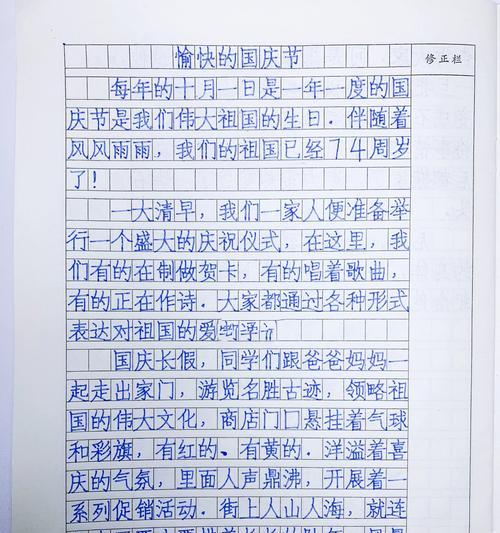 愉快的国庆节
修正栏
每年的十月一日是一年一度的国
庆节是我们伟大祖国的生日.伴随着
风风雨雨,我们的祖国已经74周岁
了!
一大清早,我们一家人便准备举
行一个盛大的庆祝仪式,在这里,我
们有的在制做贺卡,有的唱着歌曲,
有的正在作诗.大家都通过各种形式
表达对祖国的爱
国庆长假,同学们跟爸爸妈妈一
起走出家门,游览名胜古迹,领略祖
国的伟大文化,商店门口悬挂着气球
和彩旗,有红的、有黄的.洋溢着喜
庆的气氛,里面人声鼎沸,开展着一
系列促销活动.街上人山人海,就连